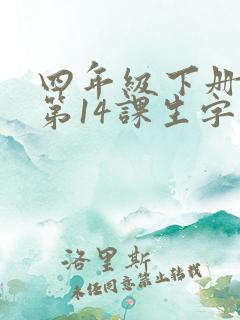 四年級下册
第14課生字
洛里斯
未经同意禁止转载